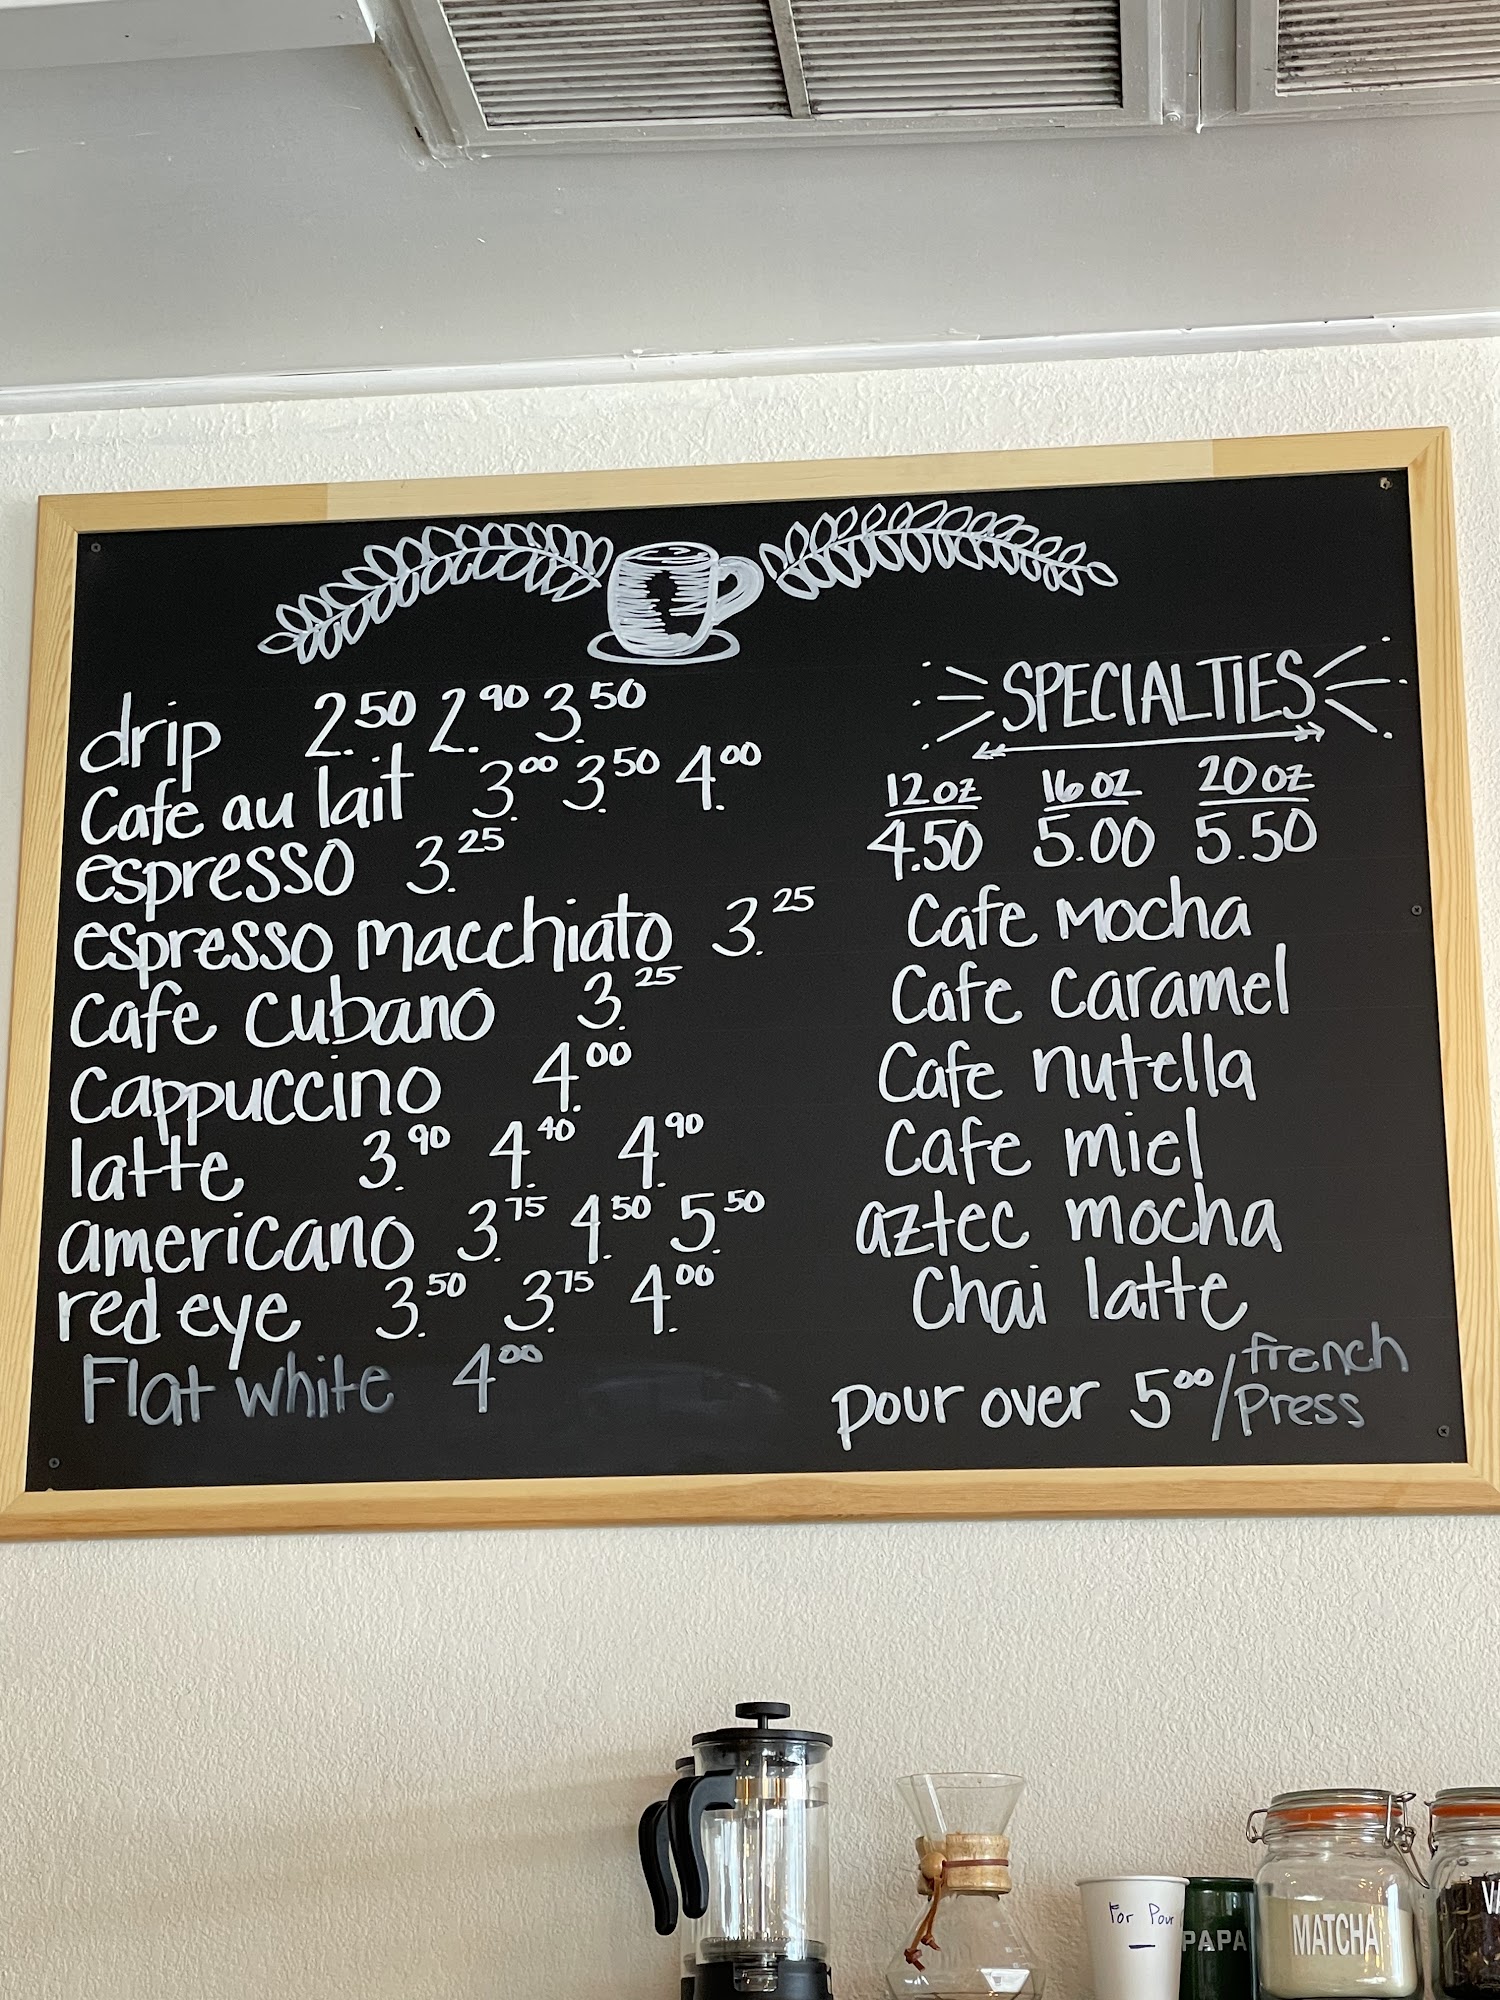 drip 2.50 2.90 3.50
Cafe au lait 3.00 3.50 4.00
espresso 3.25
espresso macchiato 3.25
Cafe cubano 3.25
Cappuccino 4.00
latte 3.90 4.40 4.90
americano 3.75 4.50 5.50
red eye 3.50 3.75 4.00
Flat white 4.00
SPECIALTIES
12oz 16oz 20oz
4.50 5.00 5.50
Cafe Mocha
Cafe caramel
Cafe nutella
Cafe miel
aztec mocha
Chai latte
pour over 5.00/french
Press
For Pour
PAPA
MATCHA